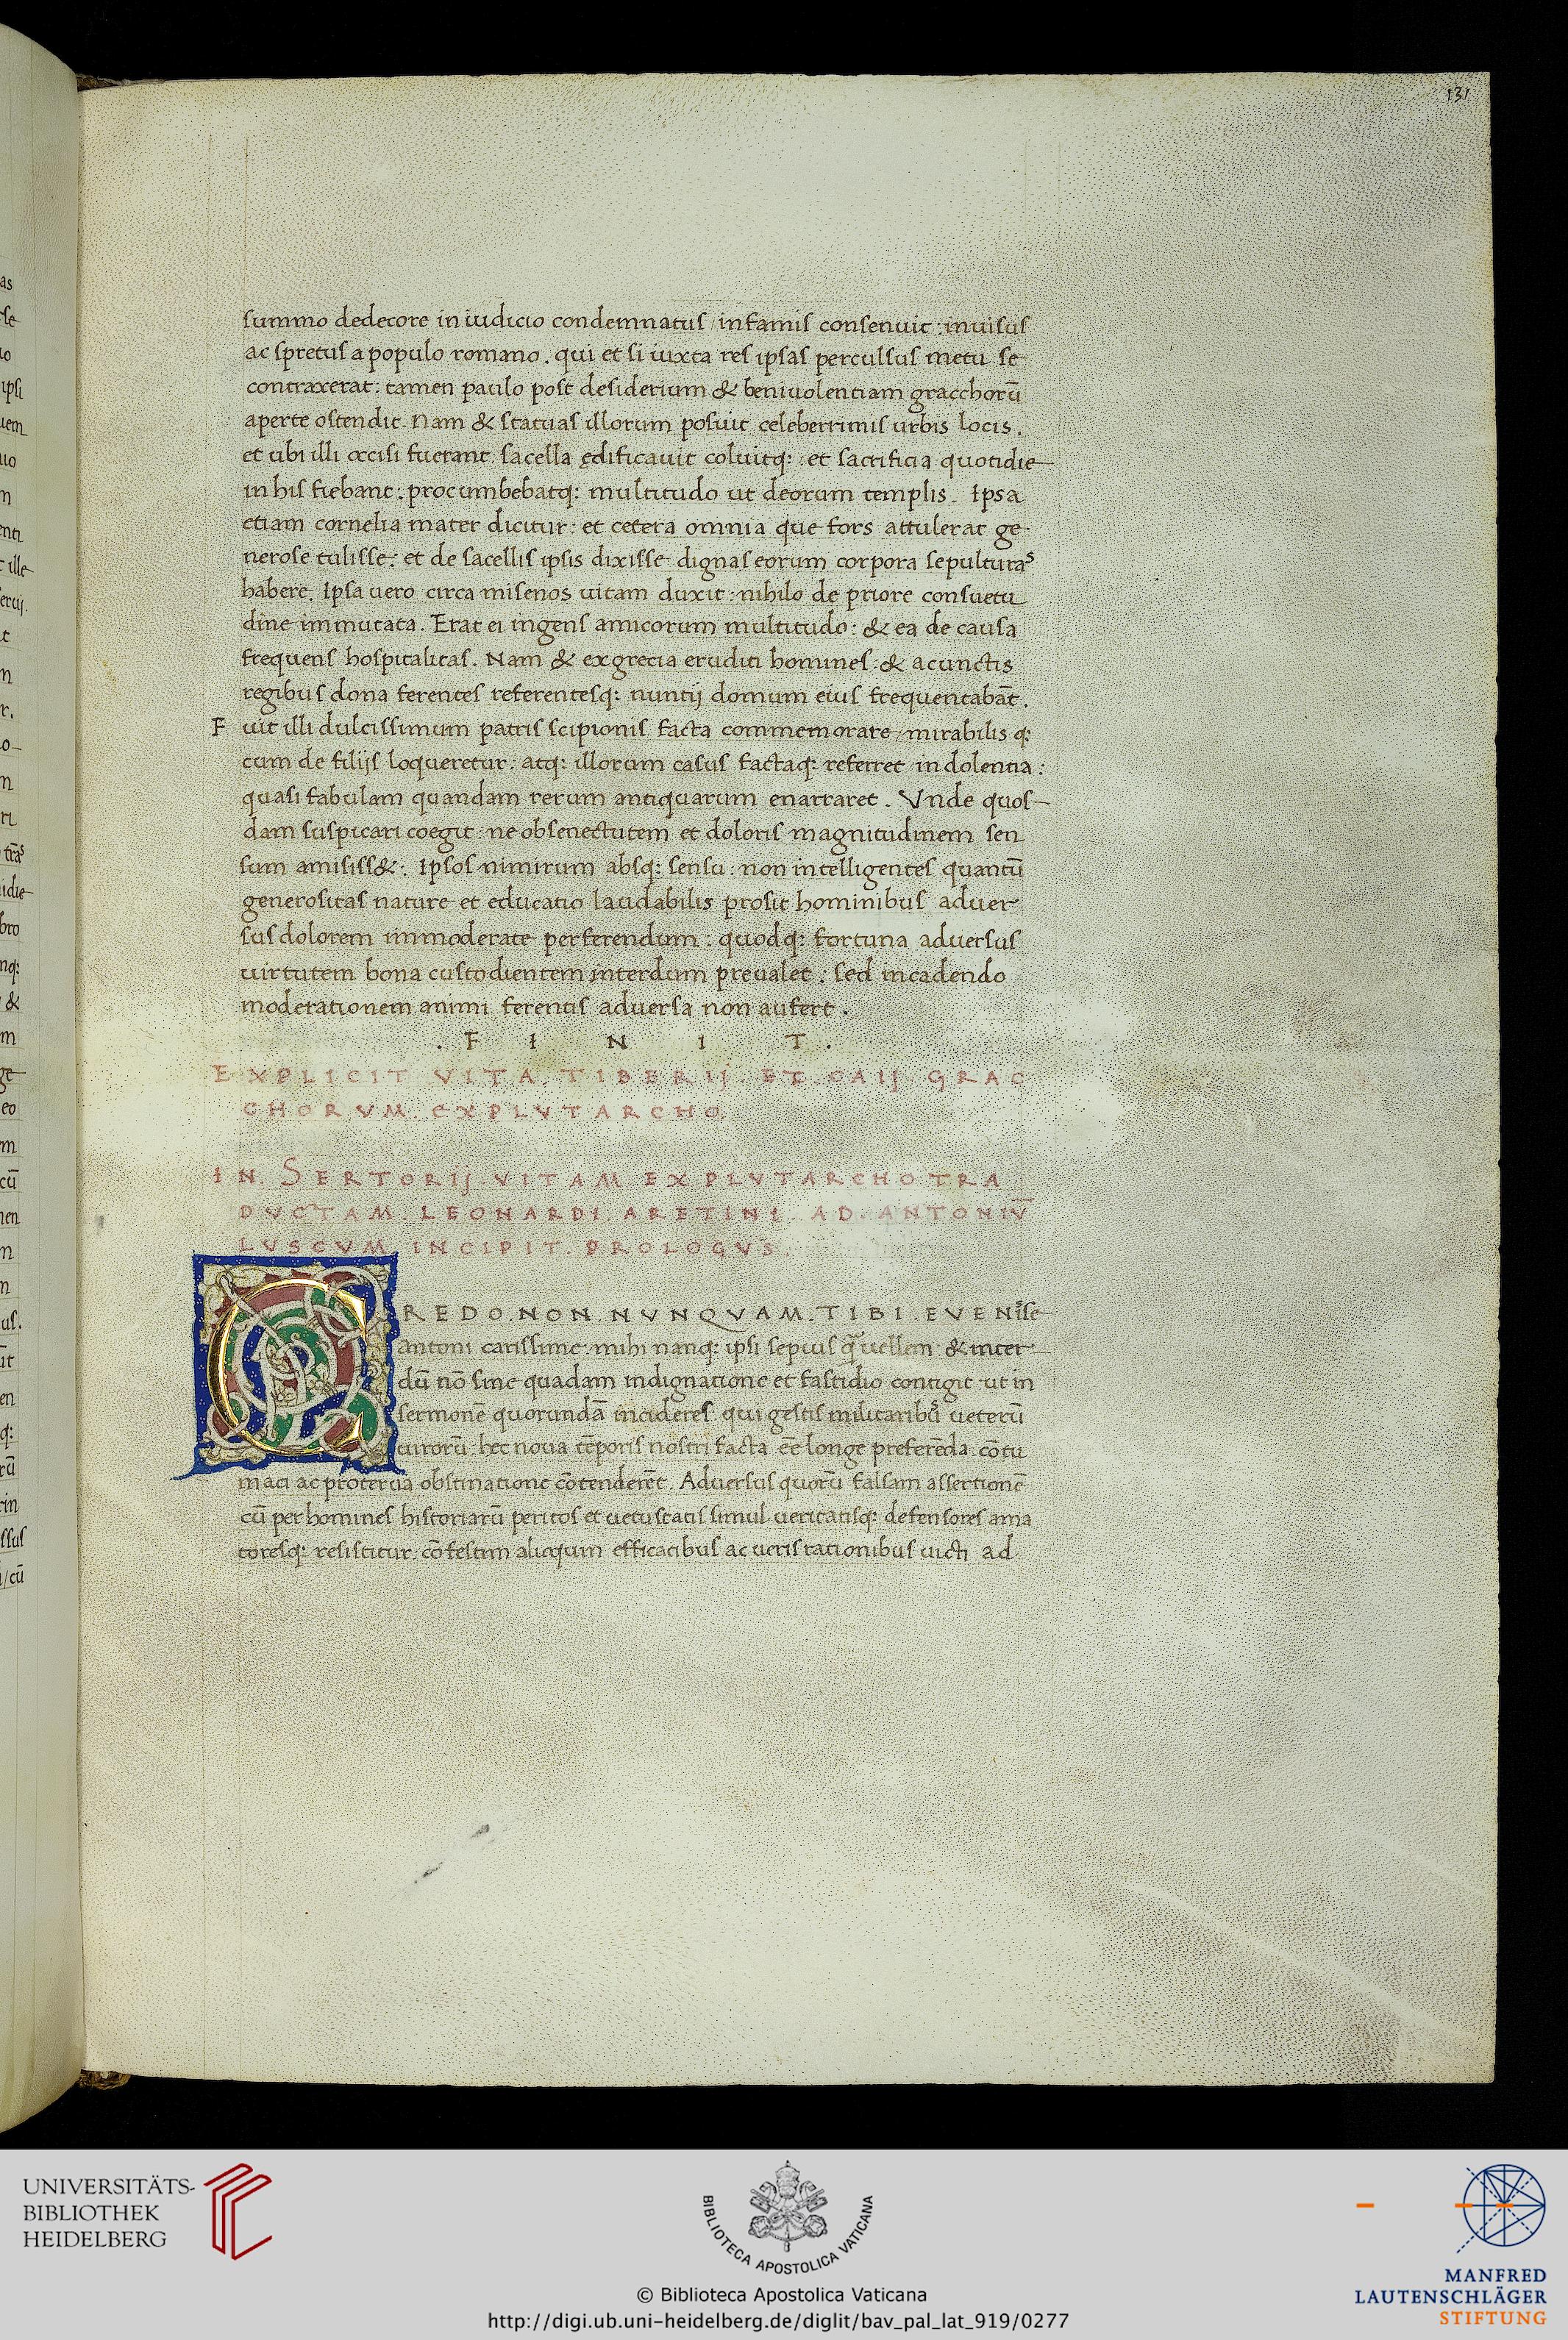 131
summo dedecore in iudicio condemnatus / infamis consenuit : inuisus
ac spretus a populo romano . qui et si iuxta res ipsas perculsus metu se
contraxerat : tamen paulo post desiderium & beniuolentiam gracchorū
aperte ostendit . Nam & statuas illorum posuit celeberrimis urbis locis .
et ubi illi occisi fuerant sacella ędificauit coluitq; : et sacrificia quotidie
in his fiebant : procumbebatq; multitudo ut deorum templis . Ipsa
etiam cornelia mater dicitur : et cetera omnia que fors attulerat ge-
nerose tulisse : et de sacellis ipsis dixisse dignas eorum corpora sepulturas
habere . Ipsa uero circa misenos uitam duxit : nihilo de priore consuetu
dine immutata . Erat ei ingens amicorum multitudo : & ea de causa
frequens hospitalitas . Nam & ex grecia eruditi homines : & a cunctis
regibus dona ferentes referentesq; nuntij domum eius frequentabāt .
F uit illi dulcissimum patris scipionis facta commemorare / mirabilis q;
cum de filijs loqueretur : atq; illorum casus factaq; referret indolentia :
quasi fabulam quandam rerum antiquarum enarraret . Vnde quos-
dam suspicari coegit : ne ob senectutem et doloris magnitudinem sen
sum amisiss& . Ipsos nimirum absq; sensu : non intelligentes quantū
generositas nature et educatio laudabilis prosit hominibus aduer
sus dolorem immoderate perferendum : quodq; fortuna aduersus
uirtutem bona custodientem interdum preualet : sed in cadendo
moderationem animi ferentis aduersa non aufert .
. F I N I T .
EXPLICIT VITA . TIBERIJ . ET . CAIJ . GRAC
CHORVM . EX PLVTARCHO
IN . SERTORIJ . VITAM EX PLVTARCHO TRA
DVCTAM . LEONARDI . ARETINI . AD . ANTONIV̄
LUSCVM INCIPIT . PROLOGVS .
CREDO . NON . NVNQVAM . TIBI . EVENisse
antoni carissime mihi nanq; ipsi sepius q̄ uellem & inter
dū nō sine quadam indignatione et fastidio contigit ut in
sermonē quorundā incideres qui gestis militaribus ueterū
uirorū hec noua tēporis nostri facta eē longe preferēda cōtu
maci ac proterua obstinatione cōtenderēt . Aduersus quorū falsam assertionē
cū per homines historiarū peritos et uetustatis simul ueritatisq; defensores ama
toresq; resistitur cōfestim aliquum efficacibus ac ueris rationibus uicti ad
UNIVERSITÄTS-
BIBLIOTHEK
HEIDELBERG
BIBLIOTECA APOSTOLICA VATICANA
© Biblioteca Apostolica Vaticana
http://digi.ub.uni-heidelberg.de/diglit/bav_pal_lat_919/0277
MANFRED
LAUTENSCHLÄGER
STIFTUNG